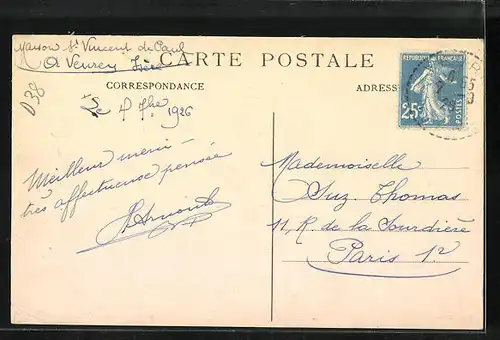 Maison St Vincent de Paul
à Veurey Isère
CARTE POSTALE
CORRESPONDANCE
ADRESSE
D38
Le 1926
RÉPUBLIQUE FRANÇAISE
25c
POSTES
Meilleur merci
très affectueuse pensée
Mademoiselle
Suz. Thomas
11, R. de la Sourdière
Paris 1er